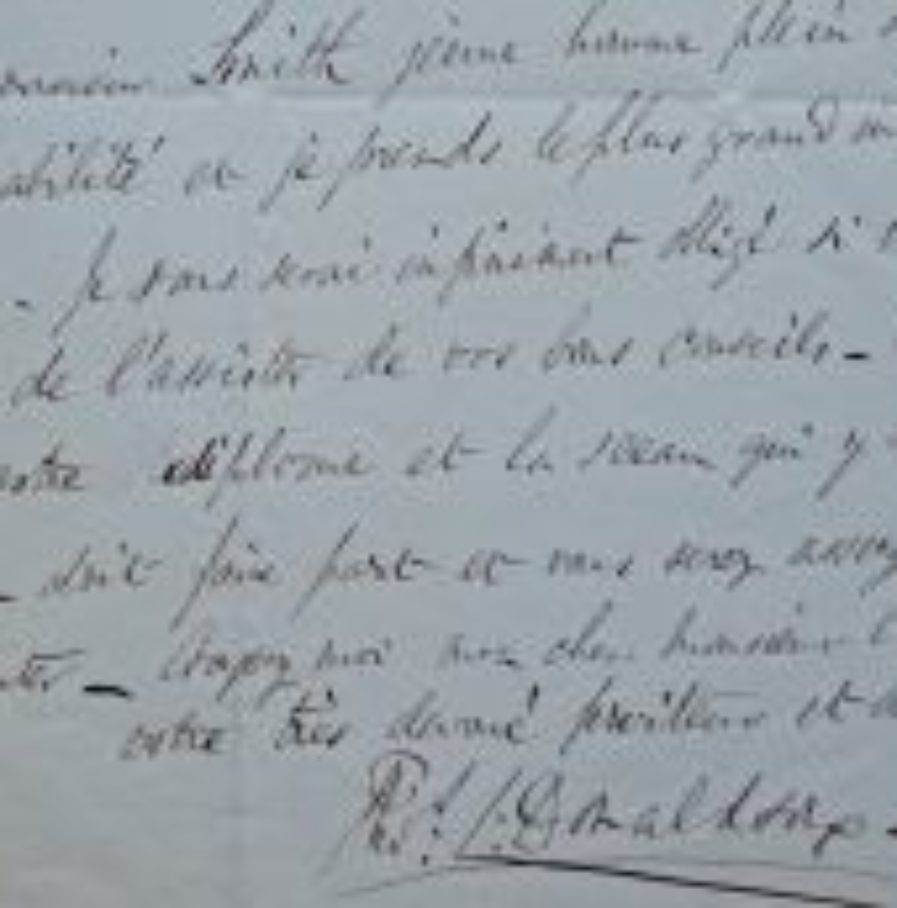 Smith jeune homme plein
abilité et je prends le plus grand
- Je vous serai infiniment obligé si
de l'assister de vos bons conseils -
diplome et le sceau qui y
- doit faire part et vous serez
- moi mon cher monsieur
votre très devoué serviteur et
Donaldson